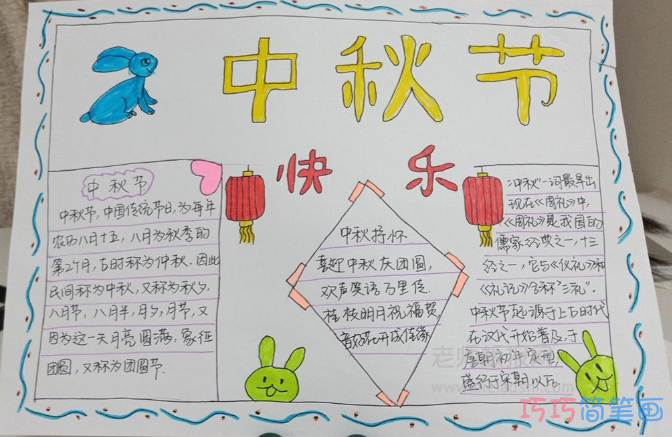 中秋节
快乐
中秋节
中秋节,中国传统节日,为每年
农历八月十五,八月为秋季的
第2个月,古时称为仲秋,因此
民间称为中秋,又称为秋夕,
八月节,八月半,月夕,月节,又
因为这一天月亮圆满,象征
团圆,又称为团圆节.
中秋抒怀
喜迎中秋庆团圆,
欢声笑语万里传.
桂枝明月祝福贺,
"中秋"一词最早出
现在《周礼》中,
《周礼》是我国的
儒家经典之一,十三
经之一,它与《仪礼》和
《礼记》合称"三礼".
中秋节起源于上古时代
在汉代开始普及,于
唐朝初年定型,
盛行于宋朝以后.
巧巧简笔画